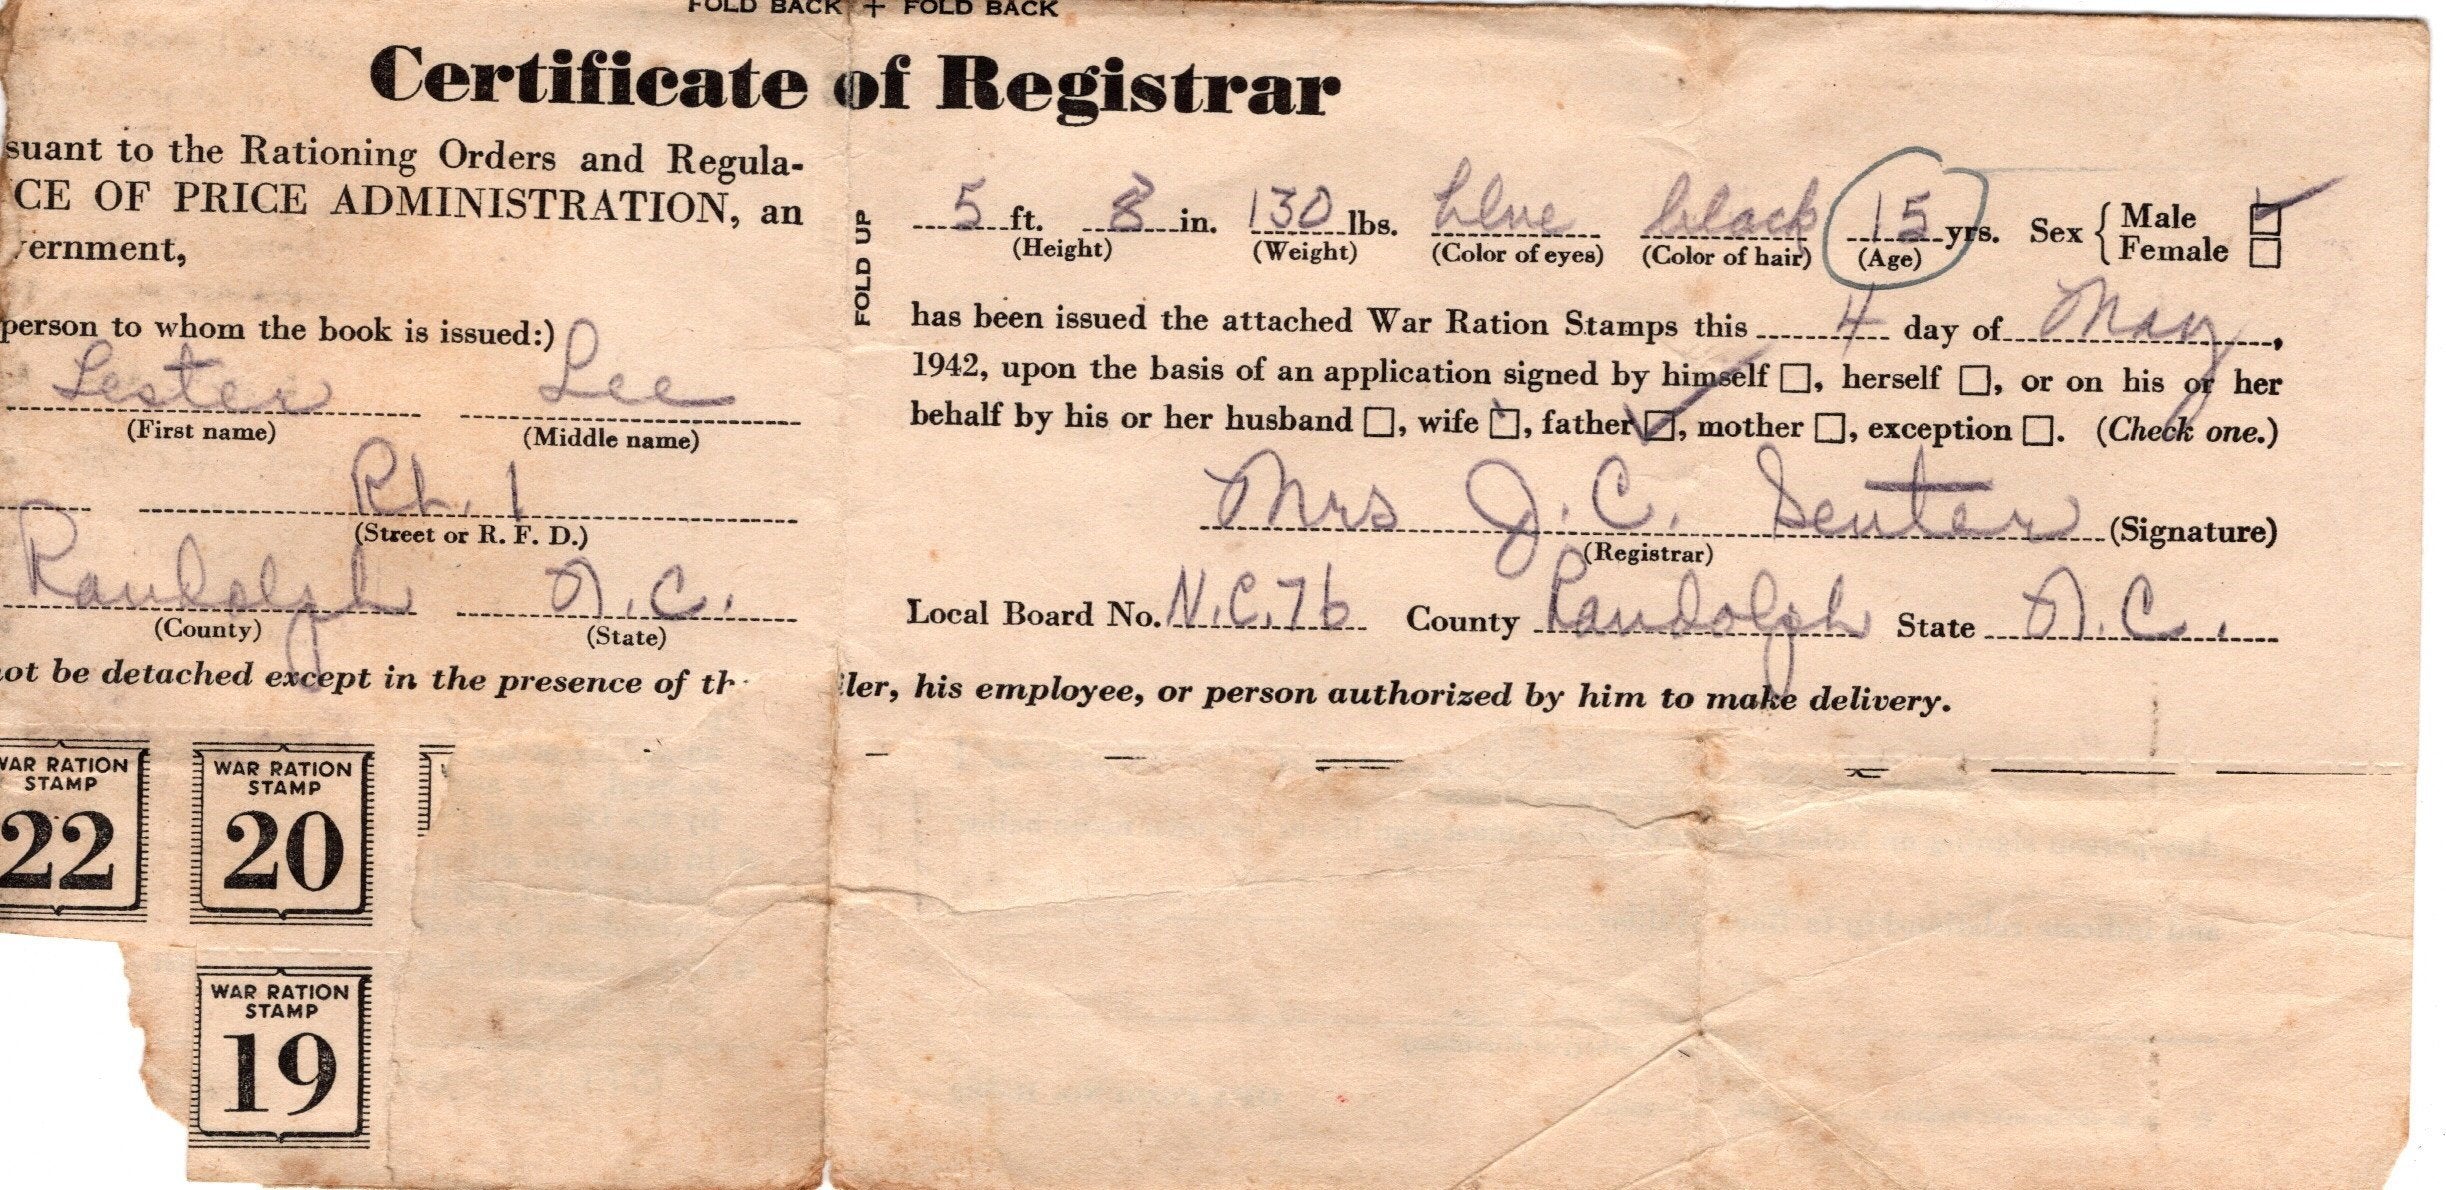 FOLD BACK + FOLD BACK
Certificate of Registrar
suant to the Rationing Orders and Regula-
CE OF PRICE ADMINISTRATION, an
vernment,
person to whom the book is issued:)
Lester Lee
(First name) (Middle name)
Rt. 1
(Street or R. F. D.)
Randolph N.C.
(County) (State)
not be detached except in the presence of th ler, his employee, or person authorized by him to make delivery.
FOLD UP
5 ft. 8 in. 130 lbs. blue black 15 yrs. Sex { Male
Female
(Height) (Weight) (Color of eyes) (Color of hair) (Age)
has been issued the attached War Ration Stamps this 4 day of May,
1942, upon the basis of an application signed by himself □, herself □, or on his or her
behalf by his or her husband □, wife □, father □, mother □, exception □. (Check one.)
Mrs J. C. Senter (Signature)
(Registrar)
Local Board No. N.C. 76 County Randolph State N.C.
WAR RATION
STAMP
22
WAR RATION
STAMP
20
WAR RATION
STAMP
19